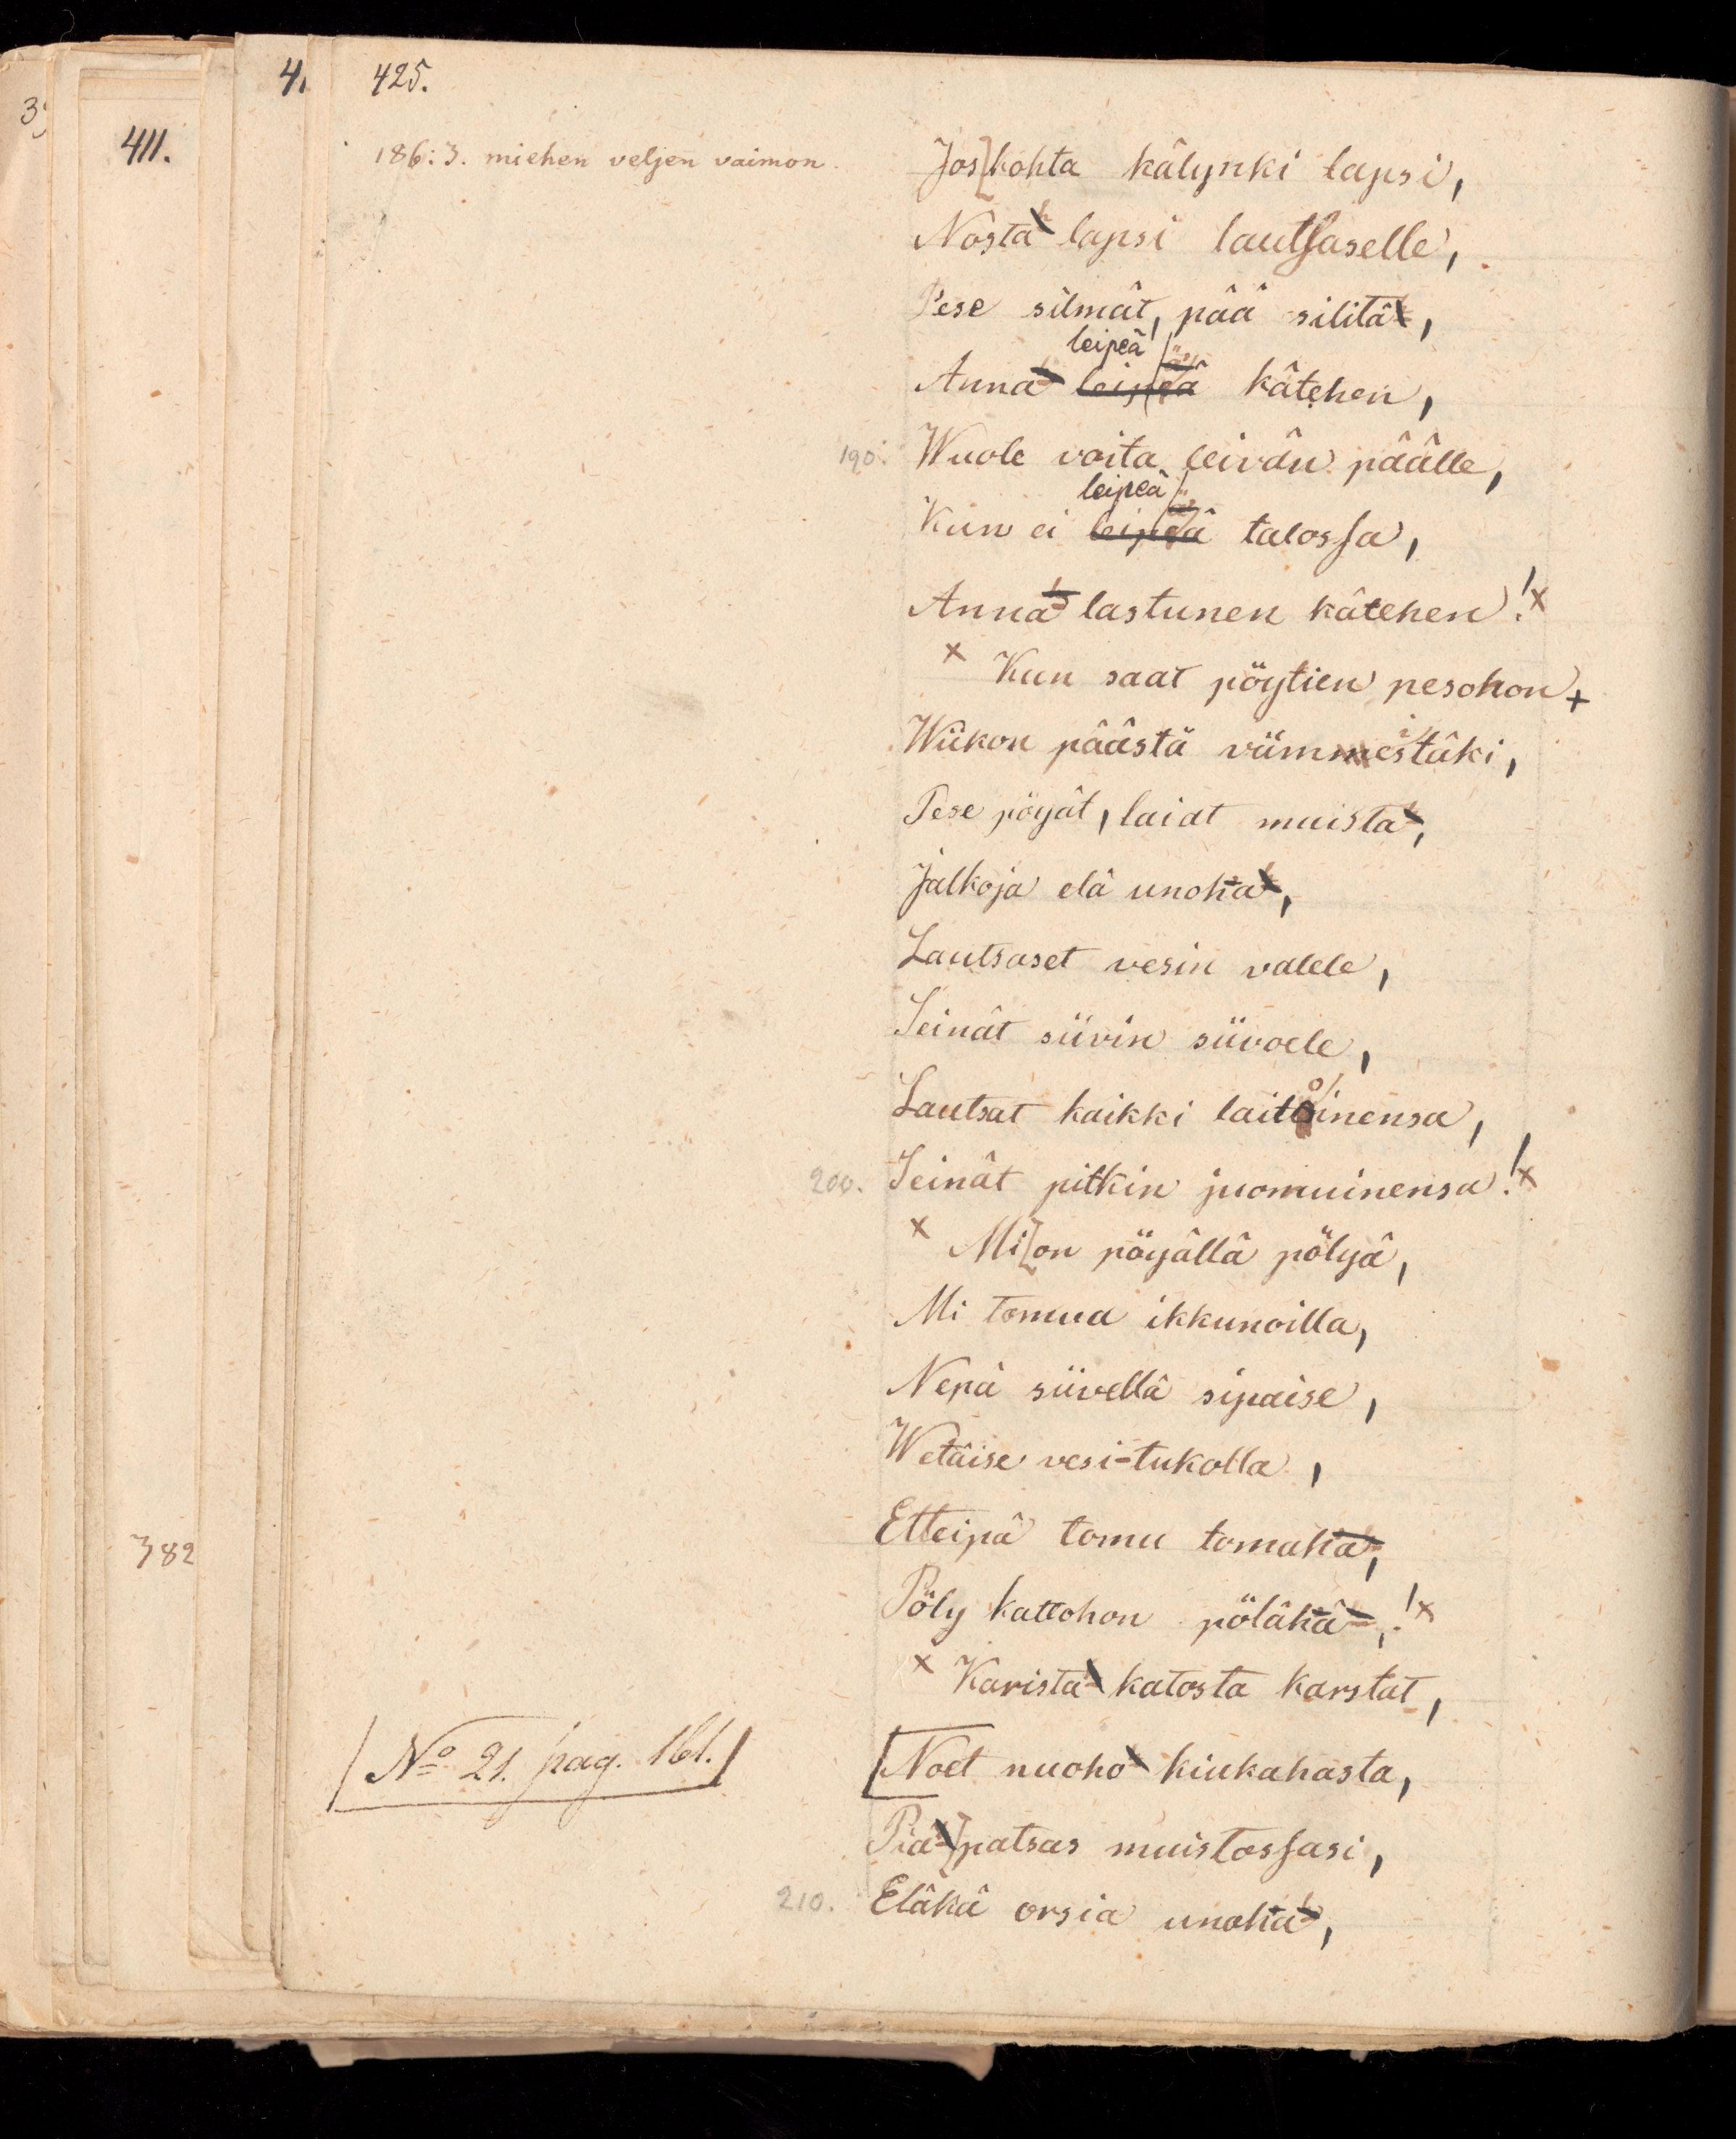 425.
411.
382
186:3. miehen veljen vaimon.
Jos kohta kälynki lapsi,
Nosta lapsi lautsaselle,
Pese silmät, pää silitä,
leipeä
Anna leipeä kätehen,
190. Wuole voita leivän päälle,
leipeä
Kun ei leipeä talossa,
Anna lastunen kätehen! x
x Kun saat pöytien pesohon +
Wiikon päästä viimmestäki,
Pese pöyät, laiat muista,
Jalkoja elä unoha,
Lautsaset vesin valele,
Seinät siivin siivoele,
Lautsat kaikki laitoinensa,
200. Seinät pitkin juomuinensa! x
x Mi on pöyällä pölyä,
Mi tomua ikkunoilla,
Nepä siivellä sipaise,
Wetäise vesi-tukolla,
Etteipä tomu tomaha,
Pöly kattohon pölähä,! x
x Karista katosta karstat,
No 21. pag. 161.
Noet nuoho kiukahasta,
Piä patsas muistossasi,
210. Eläkä orsia unoha,